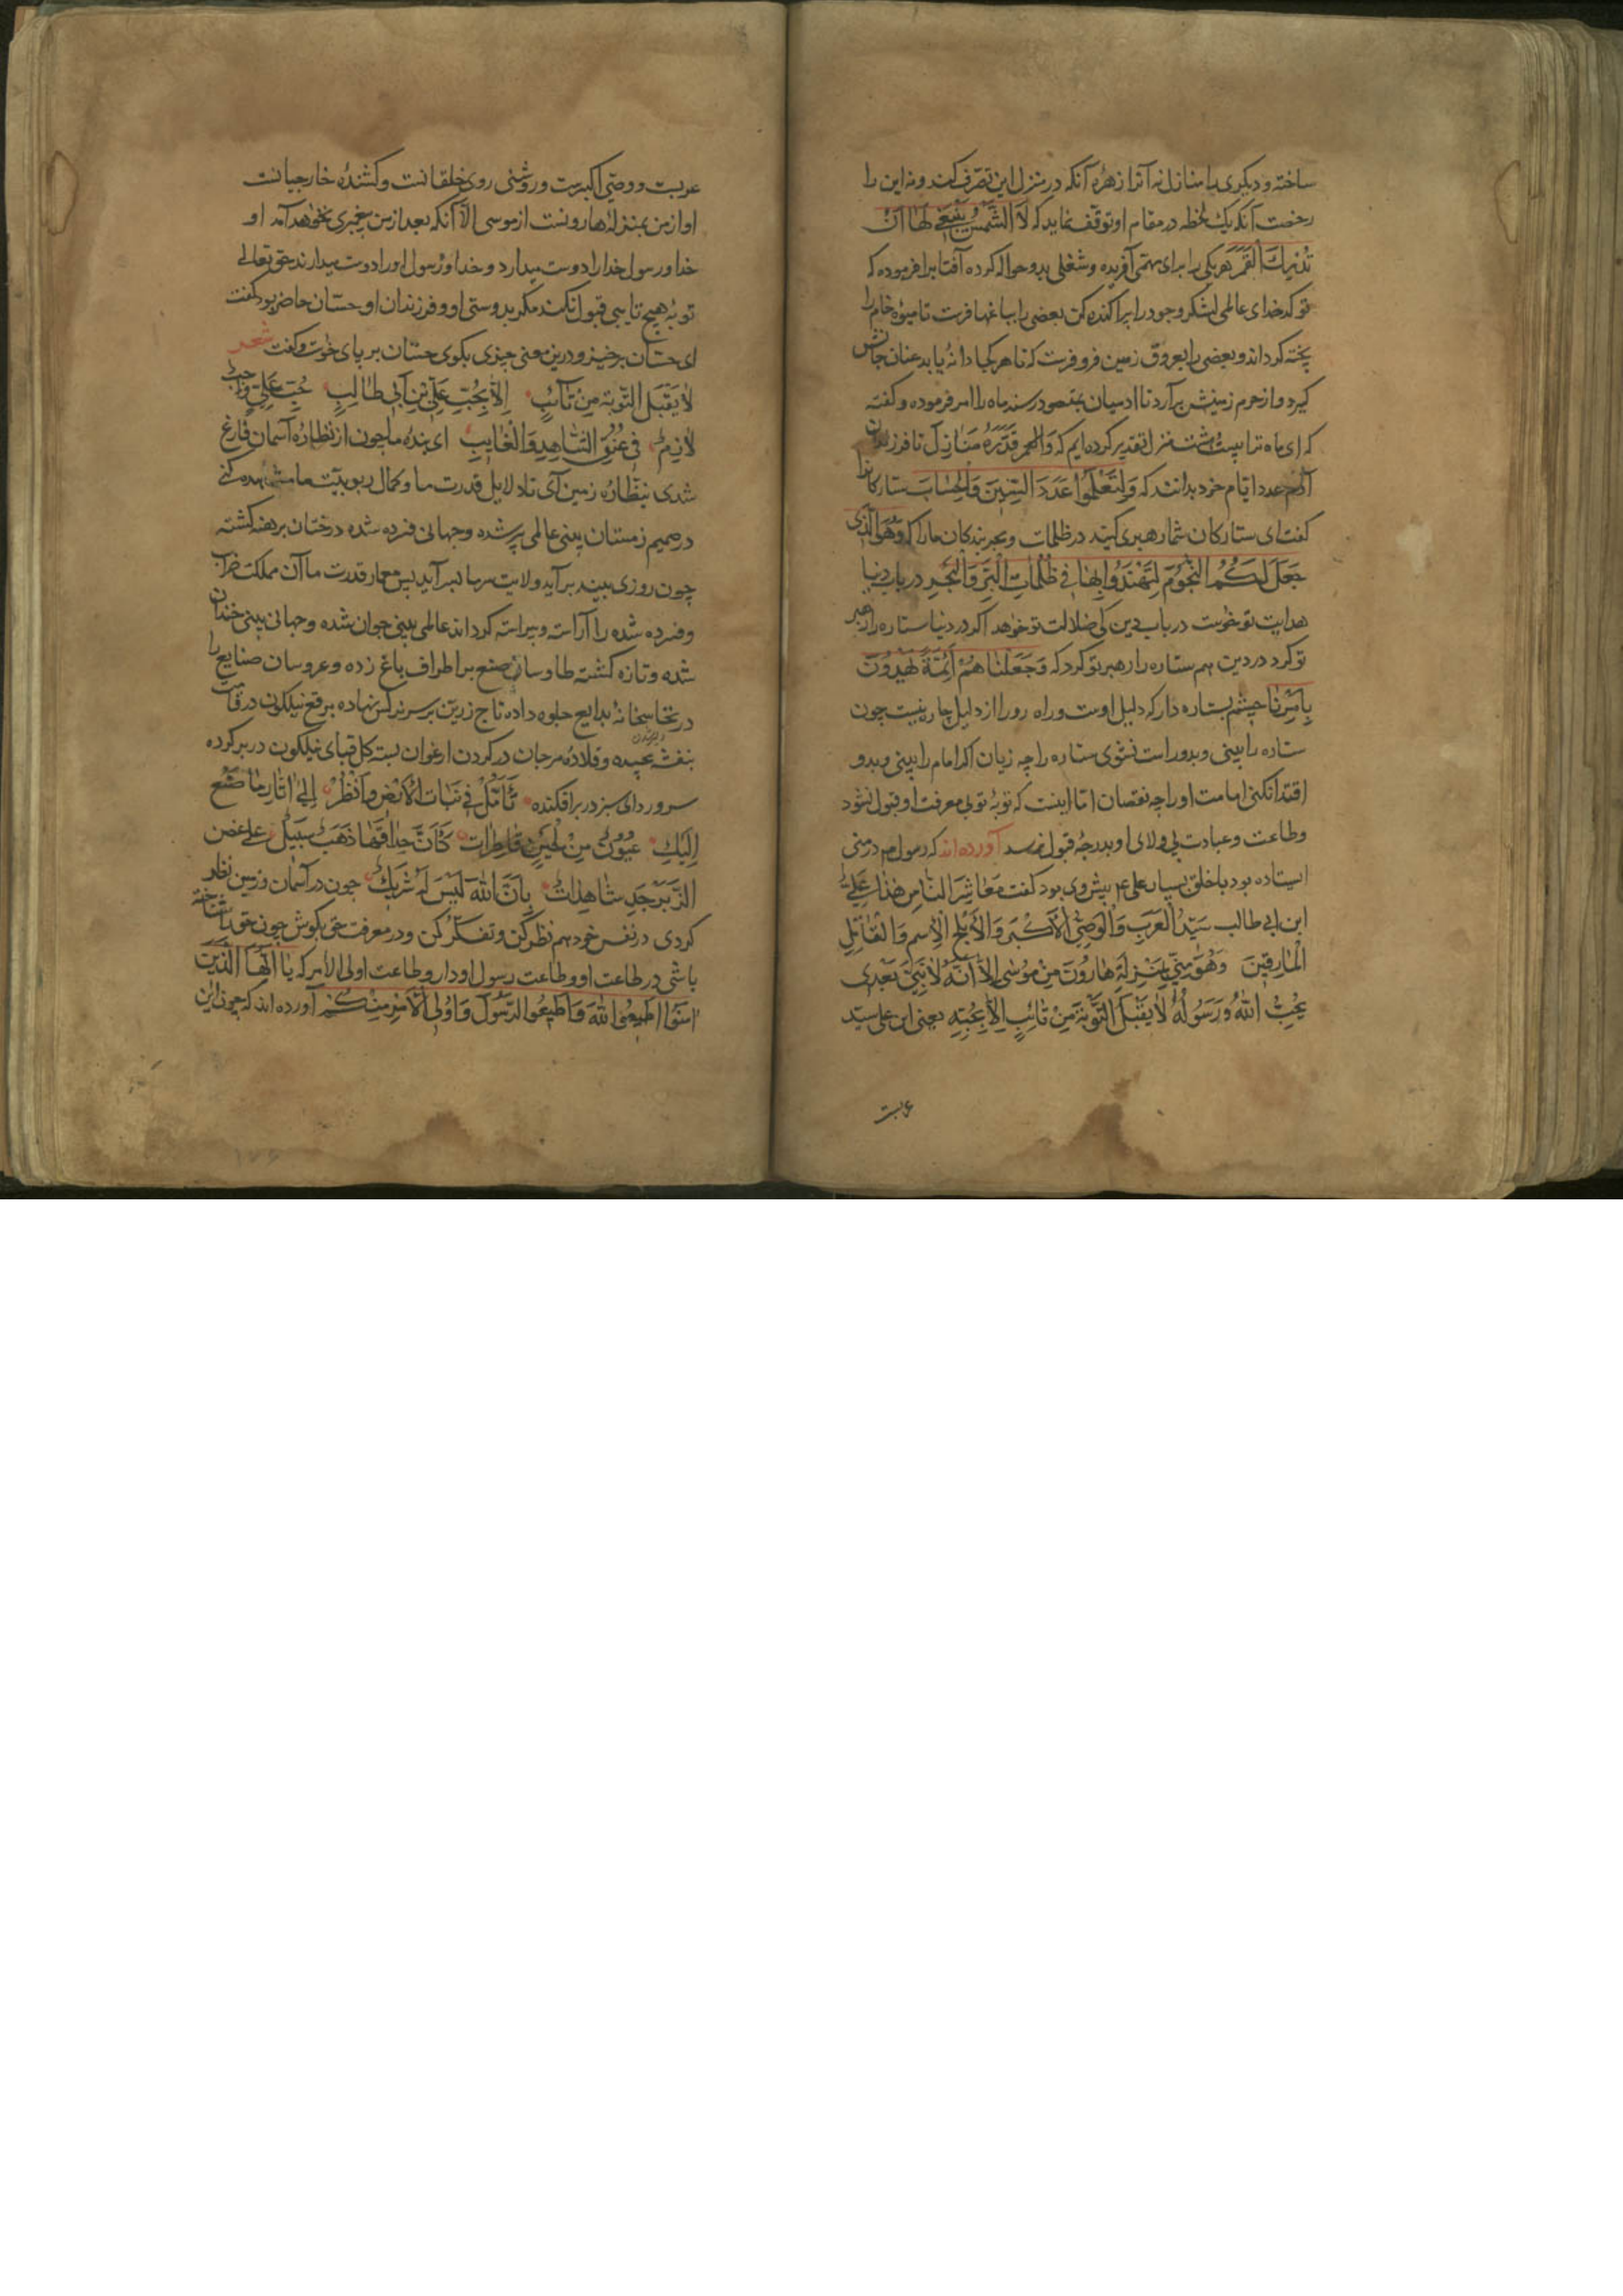 ساخته و دیکری را منازل نه آنرا زهره آنکه در منزل این تصرف کند و نه این را
رخصت آنکه یک لحظه در مقام او توقف نماید که لَا الشَّمْسُ یَنْبَغِی لَهَا اَنْ
تُدْرِكَ الْقَمَرَ هر یکی را برای مهمی آفریده و شغلی بدو حواله کرده آفتابرا فرموده که
تو کدخدای عالمی لشکر وجود را پراکنده کن بعضی را بباغها فرست تا میوهٔ خام را
پخته کرداند و بعضی را بعروق زمین فرو فرست که تا هر کجا دانهٔ یابد عنان جانش
کیرد و از حرم زمینش برآرد تا ادمیان بمقصود رسند ماه را امر فرموده و کفته
که ای ماه ترا بیست و هشت منزل تقدیر کرده ایم که وَالْقمر قَدَّرْنَاهُ مَنَازِلَ تا فرزندان
آدم عدد ایام خود بدانند که وَلِتَعْلَمُوا عَدَدَ السِّنِینَ وَالْحِسَابَ ستارکانرا
کفت ای ستارکان شما رهبری کنید در ظلمات و بحر بندکان مارا که وَهُوَ الَّذِی
جَعَلَ لَكُمُ النُّجُومَ لِتَهْتَدُوا بِهَا فِی ظُلُمَاتِ الْبَرِّ وَالْبَحْرِ در باب دنیا
هدایت تو خواست در باب دین کی ضلالت تو خواهد اکر در دنیا ستاره را رهبر
تو کرد در دین هم ستاره را رهبر تو کرد که وَجَعَلْنَا هُمْ اَئِمَّةً یَهْدُونَ
بِاَمْرِنَا چشم بستاره دار که دلیل اوست و راه رو را از دلیل چاره نیست چون
ستاره را بینی و بدو راست نشوی ستاره را چه زیان اکر امام را بینی و بدو
اقتدا نکنی امامت او را چه نقصان اما اینست که توبهٔ تو بی معرفت او قبول نشود
و طاعت و عبادت بی ولای او بدرجهٔ قبول نرسد آورده اند که رسول م در منی
ایستاده بود با خلق بسیار علی ع م پیش وی بود کفت مَعَاشِرَ النَّاسِ هٰذَا عَلِیُّ
ابن ابی طالب سَیِّدُ الْعَرَبِ وَالْوَصِیُّ الْاَكْبَرُ وَالْاَبْلَجُ الْاِسْمِ وَالْقَاتِلُ
الْمَارِقِینَ وَهُوَ مِنِّی بِمَنْزِلَةِ هَارُونَ مِنْ مُوسٰی اِلَّا اَنَّهُ لَا نَبِیَّ بَعْدِی
یُحِبُّ اللهُ وَرَسُولُهُ لَا یَقْبَلُ التَّوْبَةَ مِنْ تَائِبٍ اِلَّا بِحُبِّهِ یعنی این علی سید
عربست
عربست و وصی اکبرست و روشنی روی خلقانت و کشندهٔ خارجیانت
او از من بمنزلهٔ هارونست از موسی الا آنکه بعد از من پیغمبری نخواهد آمد او
خدا و رسول خدا را دوست میدارد و خدا و رسول او را دوست میدارند حق تعالی
توبهٔ هیچ تایبی قبول نکند مکر بدوستی او و فرزندان او حسان حاضر بود کفت
ای حسان برخیز و درین معنی چیزی بکوی حسان بر پای خواست و کفت شعر
لَا یَقْبَلُ التَّوْبَةَ مِنْ تَائِبٍ اِلَّا بِحُبِّ عَلِیِّ بْنِ اَبِی طَالِبٍ حُبُّ عَلِیٍّ وَاجِبٌ
لَازِمٌ فِی عُنُقِ الشَّاهِدِ وَالْغَایِبِ ای بندهٔ ما چون از نظارهٔ آسمان فارغ
شدی بنظارهٔ زمین آی تا دلایل قدرت ما و کمال ربوبیت ما مشاهده کنی
در صمیم زمستان بینی عالمی پیر شده و جهانی فسرده شده درختان برهنه کشته
چون روزی چند برآید و لایت سرما بسر آید پس معمار قدرت ما آن مملکت خراب
و فسرده شده را آراسته و پیراسته کرداند عالمی بینی جوان شده و جهانی بینی خندان
شده و تازه کشته طاوسان صنع بر اطراف باغ زده و عروسان صنایع را
در نخاسخانهٔ بدایع جلوه داده تاج زرین بر سر نرکس نهاده برقع نیلکون در قامت
بنفشه پیچیده و قلادهٔ مرجان در کردن ارغوان بسته کل قبای نیلکون در بر کرده
سرو ردای سبز در بر افکنده تَأَمَّلْ فِی نَبَاتِ الْاَرْضِ وَانْظُرْ اِلٰی اٰثَارِ مَا صَنَعَ
الِیكَ عُیُونٌ مِنْ لُجَیْنٍ فَاطِرَاتٌ كَاَنَّ حِدَاقَهَا ذَهَبٌ سَبِیكٌ علی غصن
الزَّبَرْجَدِ شَاهِدَاتٌ بِاَنَّ اللهَ لَیْسَ لَهُ شَرِیكٌ چون در آسمان و زمین نظر
کردی در نفس خود هم نظر کن و تفکر کن و در معرفت حق بکوش چون حق را شناخته
باشی در طاعت او و طاعت رسول او دار و طاعت اولی الامر که یَا اَیُّهَا الَّذِینَ
اٰمَنُوا اَطِیعُوا اللهَ وَاَطِیعُوا الرَّسُولَ وَاُولِی الْاَمْرِ مِنْكُمْ آورده اند که چون این